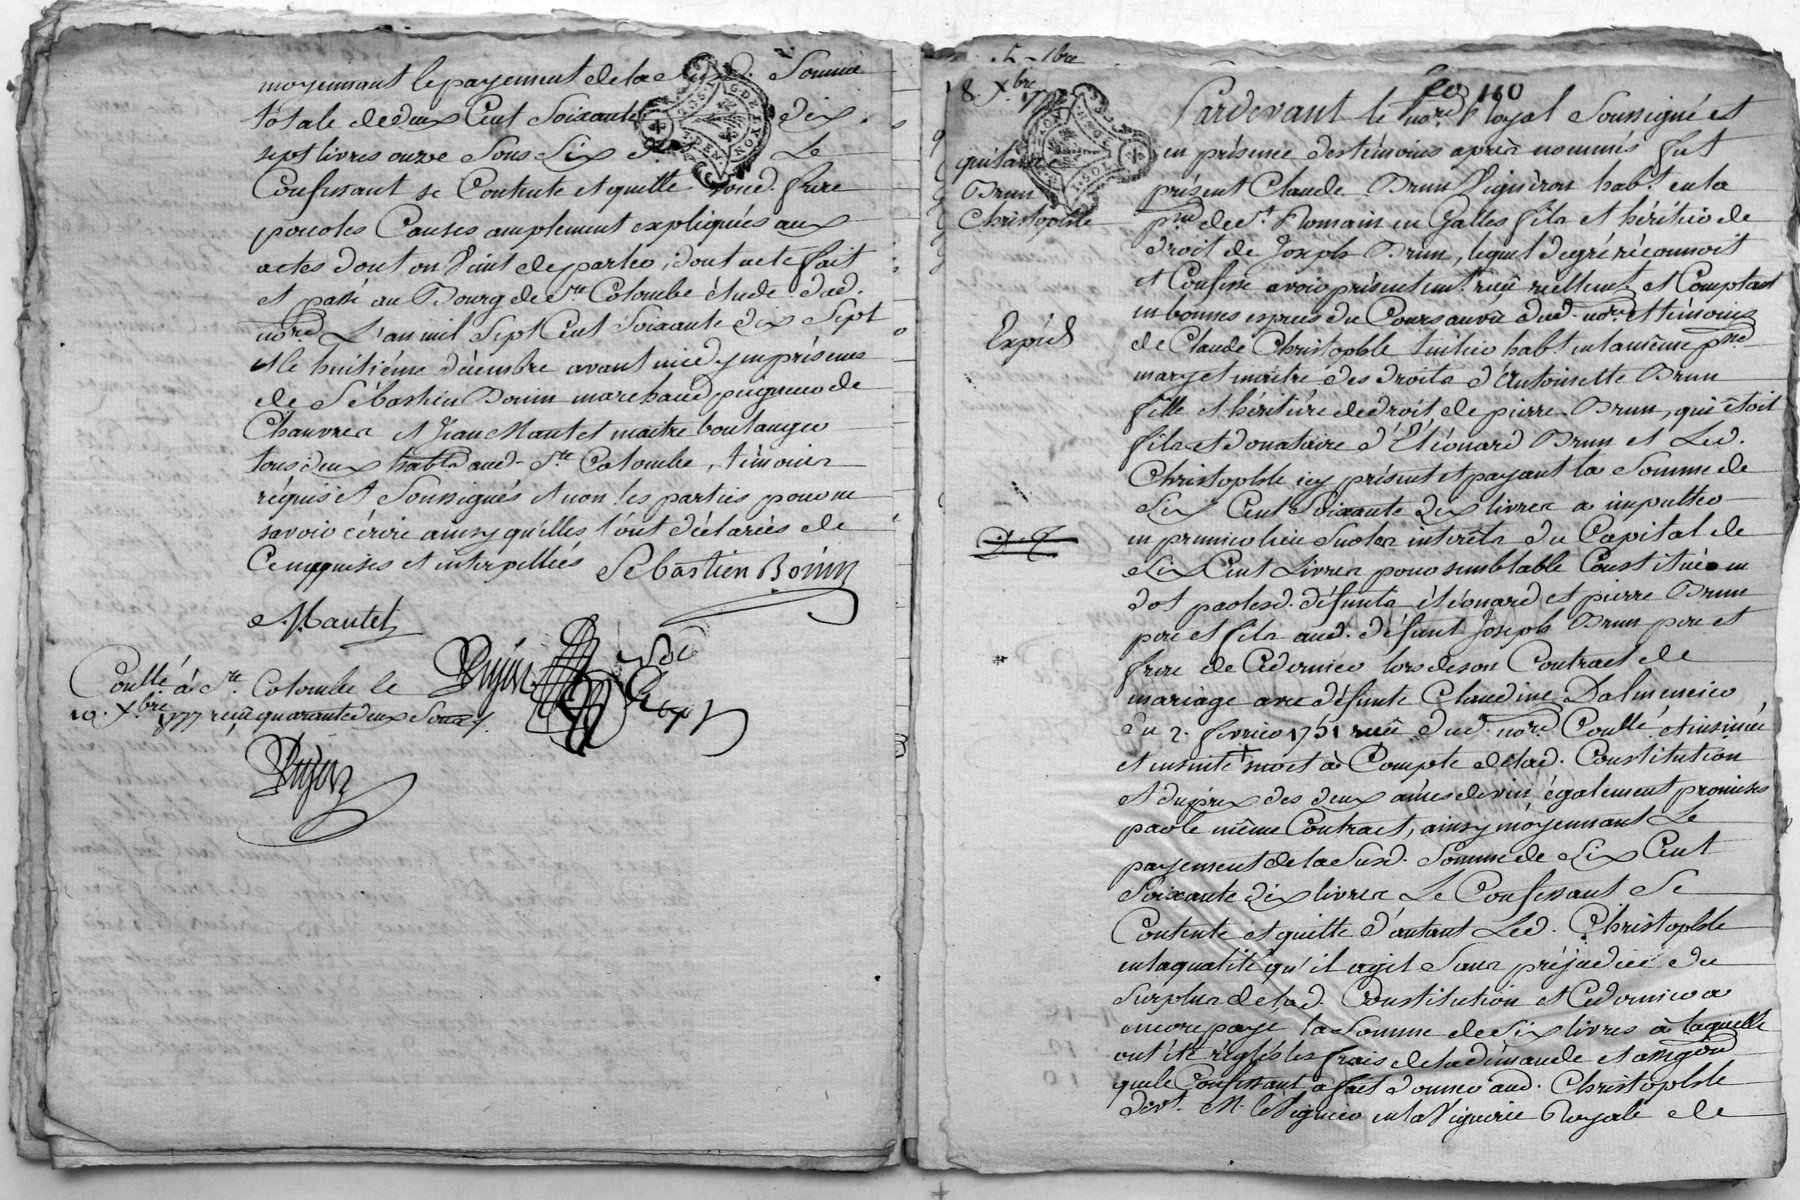 moyennant le payement de la Susd. Somme
totale de deux Cent Soixante dix
sept livres onze Sous Six d. Le
Confessant se Contente et quitte soud. frere
pour les Causes amplement expliquées aux
actes dont on Vient de parler, dont acte fait
et passé au Bourg de Ste Colombe étude dud.
nore L'an mil Sept Cent Soixante dix Sept
et le huitième décembre avant midy en présence
de Sébastien Bonin marchand peigneur de
Chanvres et Jean Mantel maitre boulanger
tous deux habts aud. Ste Colombe, témoins
réquis et Soussignés et non les parties pour ne
savoir écrire ainsy qu'elles l'ont déclarées de
Ce enquises et interpellées Sébastien Bonin
J. Mantel
Coullé à Ste Colombe le
10. Xbre 1777 reçu quarante deux Sous
18 Xbre 17
110
Pardevant le nore Royal Soussigné et
en présence des témoins après nommés fut
quitance
présent Claude Brun Vigneron habt. en la
Brun
Christophle
pse de St. Romain en Galles fils et héritier de
droit de Joseph Brun, lequel de gré réconnoit
et Confesse avoir présentemt. reçu réellemt. et Comptant
en bonnes espèces du Cours au vû dud. nore et témoins
Expéd
de Claude Christophle luitier habt. en la même pse
mary et maitre des droits d'Antoinette Brun
fille et héritière de droit de pierre Brun, qui étoit
fils et donataire d'Eléonard Brun et Led.
Christophle icy présent et payant la Somme de
Six Cent Soixante dix livres a imputter
en premier lieu Sur les interets du Capital de
Six Cent Livres pour semblable Constituée en
dot par lesd. défunts Eléonard et pierre Brun
pere et fils aud. défunt Joseph Brun pere et
frere de Ce dernier lors de son Contract de
mariage avec défunte Claudine Dalmencier
du 2. février 1751 reçu dud. nore Coullé et insinué
et ensuite et à Compte de lad. Constitution
et du prix des deux anées de vin également promises
par le même Contract, ainsy moyennant Le
payement de la Susd. Somme de Six Cent
Soixante dix livres Le Confessant Se
Contente et quitte d'autant Led. Christophle
en la qualité qu'il agit Sans préjudice du
Surplus de lad. Constitution et Ce dernier a
encore payé la Somme de Six livres à laquelle
ont été réglés les frais de la demande et assignon
que le Confessant a fait donner aud. Christophle
devt. M. le Viguier en la Viguerie Royale de